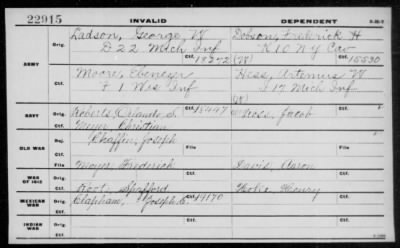 22915 INVALID DEPENDENT
Ladson, George W Dobson, Frederick H
ARMY Orig. D 22 Mich Inf K 10 N Y Cav
18272 (W) Ctf. 15530
Moore, Ebenezer Hess, Artemus W
Ctf. F 1 Wis Inf I 17 Mich Inf
(W)
NAVY Orig. Roberts, Orlando S. Ctf. 18447 Ross, Jacob
Ctf. Meyer, Christian
OLD WAR Rej. Chaffin, Joseph
File File
Moyer, Frederick
WAR OF 1812 Ctf. David, Aaron
Root, Spafford Henry
MEXICAN WAR Orig. Clapham, Joseph E. Ctf. 19170 Ctf.
Ctf.
INDIAN WAR Orig. Ctf. Ctf.
Ctf.